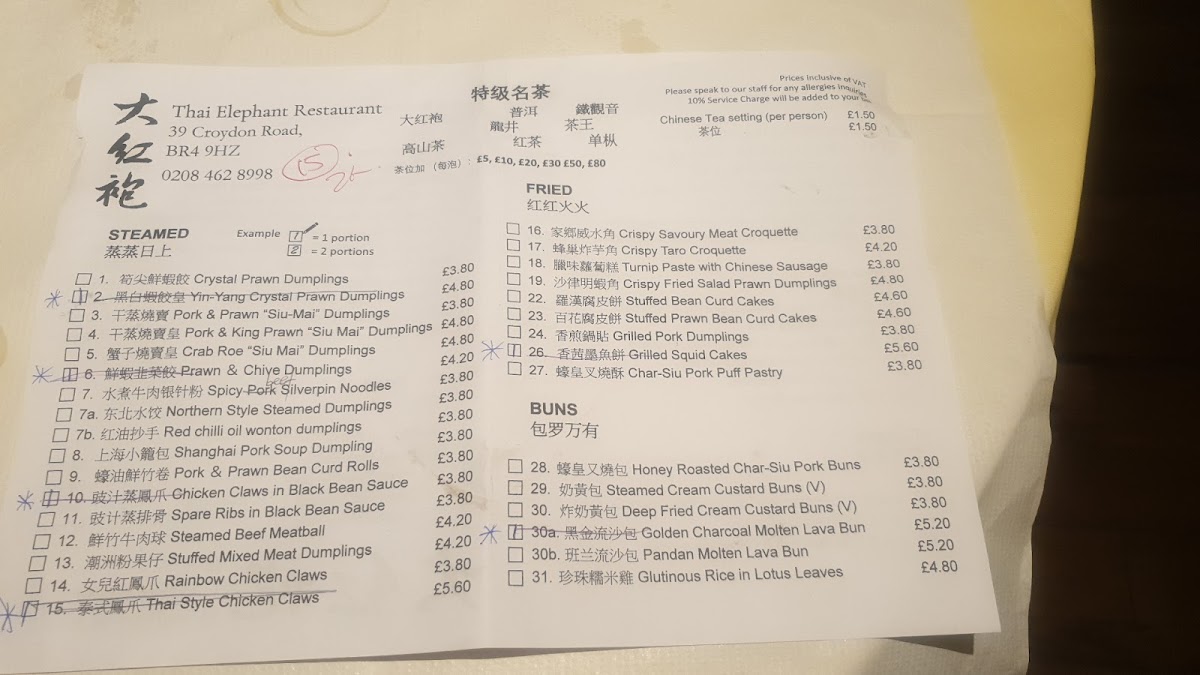 大红袍
Thai Elephant Restaurant
39 Croydon Road,
BR4 9HZ
0208 462 8998
15
特级名茶
大红袍 普洱 鐵觀音
龍井 茶王
高山茶 红茶 单枞
茶位加 (每泡): £5, £10, £20, £30 £50, £80
Prices Inclusive of VAT
Please speak to our staff for any allergies inquiries
10% Service Charge will be added to your
Chinese Tea setting (per person) £1.50
茶位 £1.50
STEAMED
蒸蒸日上
Example 1 = 1 portion
2 = 2 portions
1. 筍尖鮮蝦餃 Crystal Prawn Dumplings £3.80
2. 黑白蝦餃皇 Yin-Yang Crystal Prawn Dumplings £4.80
3. 干蒸燒賣 Pork & Prawn “Siu-Mai” Dumplings £3.80
4. 干蒸燒賣皇 Pork & King Prawn “Siu Mai” Dumplings £4.80
5. 蟹子燒賣皇 Crab Roe “Siu Mai” Dumplings £4.80
6. 鮮蝦韭菜餃 Prawn & Chiye Dumplings £4.20
beef
7. 水煮牛肉银针粉 Spicy Pork Silverpin Noodles £3.80
7a. 东北水饺 Northern Style Steamed Dumplings £3.80
7b. 红油抄手 Red chilli oil wonton dumplings £3.80
8. 上海小籠包 Shanghai Pork Soup Dumpling £3.80
9. 蠔油鮮竹卷 Pork & Prawn Bean Curd Rolls £3.80
10. 豉汁蒸鳳爪 Chicken Claws in Black Bean Sauce £3.80
11. 豉汁蒸排骨 Spare Ribs in Black Bean Sauce £3.80
12. 鮮竹牛肉球 Steamed Beef Meatball £4.20
13. 潮洲粉果仔 Stuffed Mixed Meat Dumplings £4.20
14. 女兒紅鳳爪 Rainbow Chicken Claws £3.80
15. 泰式鳳爪 Thai Style Chicken Claws £5.60
FRIED
红红火火
16. 家鄉咸水角 Crispy Savoury Meat Croquette £3.80
17. 蜂巢炸芋角 Crispy Taro Croquette £4.20
18. 臘味蘿蔔糕 Turnip Paste with Chinese Sausage £3.80
19. 沙律明蝦角 Crispy Fried Salad Prawn Dumplings £4.80
22. 羅漢腐皮餅 Stuffed Bean Curd Cakes £4.60
23. 百花腐皮餅 Stuffed Prawn Bean Curd Cakes £4.60
24. 香煎鍋貼 Grilled Pork Dumplings £3.80
26. 香茜墨魚餅 Grilled Squid Cakes £5.60
27. 蠔皇叉燒酥 Char-Siu Pork Puff Pastry £3.80
BUNS
包罗万有
28. 蠔皇叉燒包 Honey Roasted Char-Siu Pork Buns £3.80
29. 奶黃包 Steamed Cream Custard Buns (V) £3.80
30. 炸奶黃包 Deep Fried Cream Custard Buns (V) £3.80
30a. 黑金流沙包 Golden Charcoal Molten Lava Bun £5.20
30b. 班兰流沙包 Pandan Molten Lava Bun £5.20
31. 珍珠糯米雞 Glutinous Rice in Lotus Leaves £4.80